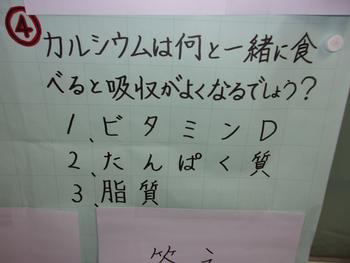 ④
カルシウムは何と一緒に食
べると吸収がよくなるでしょう？
1、ビタミンD
2、たんぱく質
3、脂質